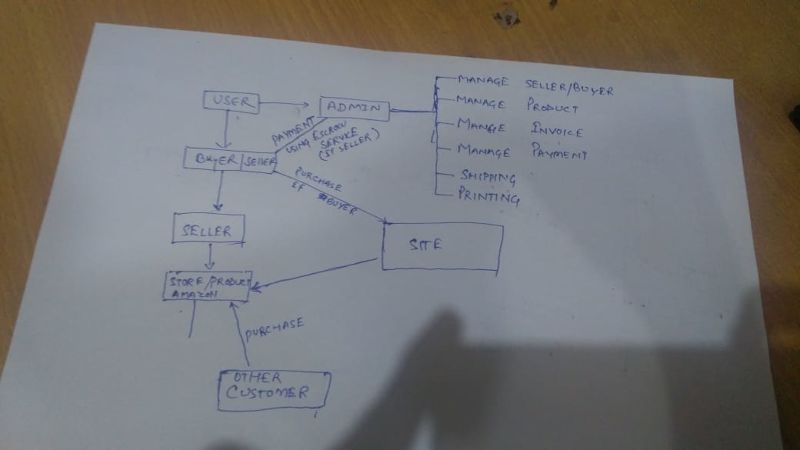 USER
ADMIN
MANAGE SELLER/BUYER
MANAGE PRODUCT
MANGE INVOICE
MANAGE PAYMENT
SHIPPING
PRINTING
PAYMENT
USING ESCROW
SERVICE
(IF SELLER)
BUYER/SELLER
PURCHASE
IF BUYER
SELLER
SITE
STORE/PRODUCT
AMAZON
PURCHASE
OTHER
CUSTOMER